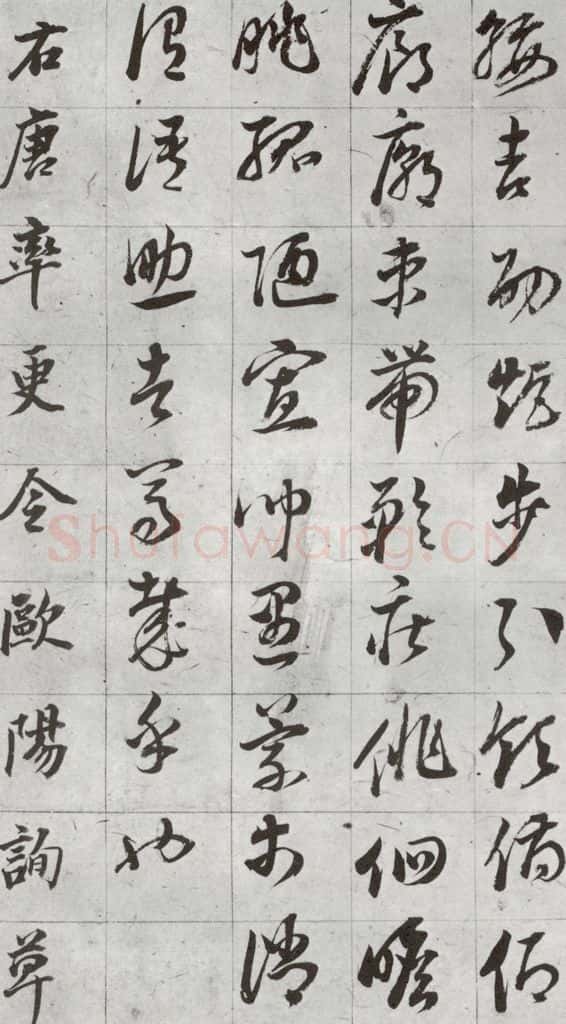 綏吉劭矩步引領俯仰
廊廟束帶矜莊俳佪瞻
眺孤陋寡聞愚蒙等誚
謂語助者焉哉乎也
右唐率更令歐陽詢草
Shufawang.CN